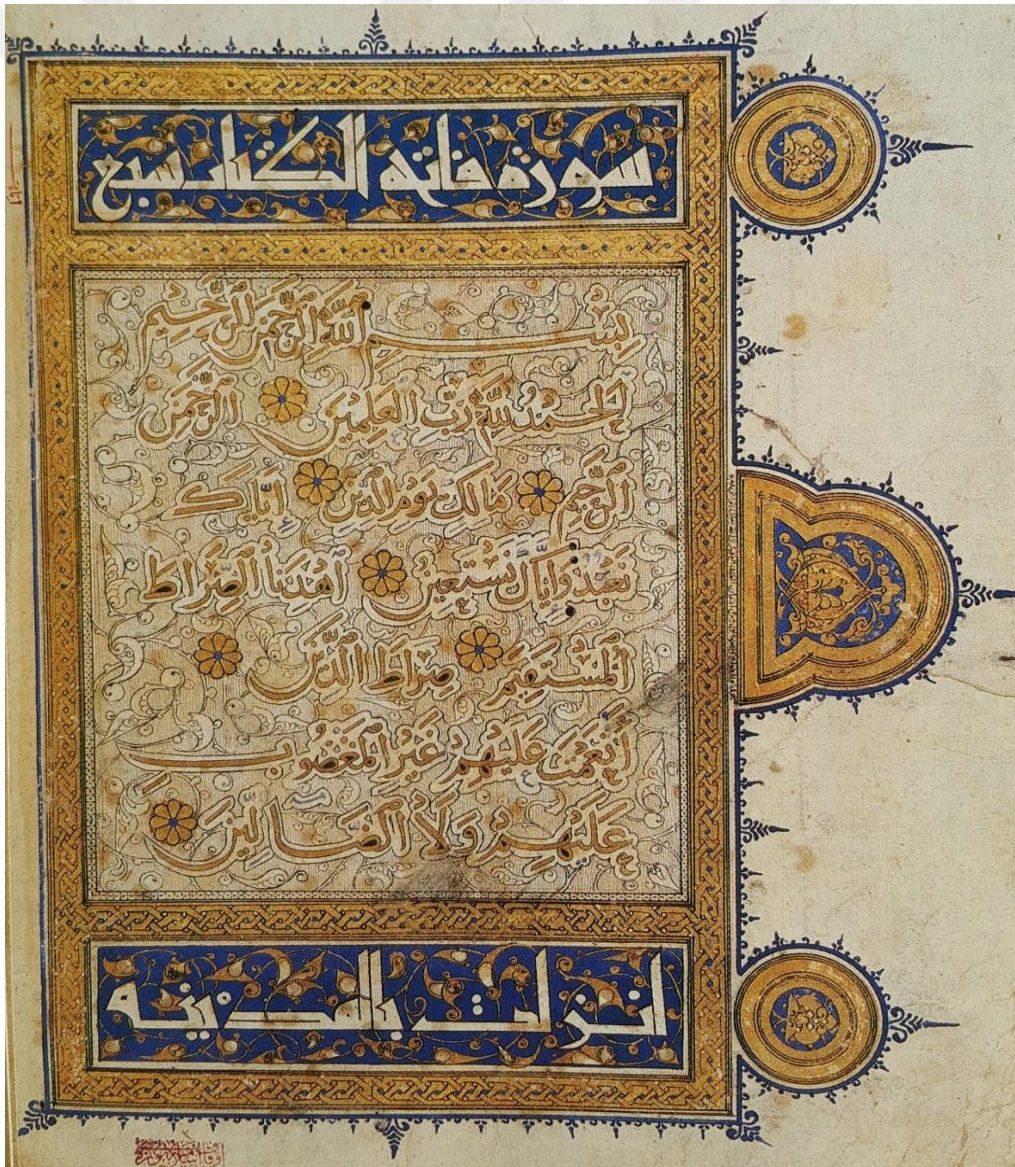 سورة فاتحة الكتاب سبع
بِسْمِ اللَّهِ الرَّحْمَٰنِ الرَّحِيمِ
الْحَمْدُ لِلَّهِ رَبِّ الْعَلَمِينَ الرَّحْمَٰنِ
الرَّحِيمِ مَالِكِ يَوْمِ الدِّينِ إِيَّاكَ
نَعْبُدُ وَإِيَّاكَ نَسْتَعِينُ اهْدِنَا الصِّرَاطَ
الْمُسْتَقِيمَ صِرَاطَ الَّذِينَ
أَنْعَمْتَ عَلَيْهِمْ غَيْرِ الْمَغْضُوبِ
عَلَيْهِمْ وَلَا الضَّالِّينَ
انزلت بالمدينة